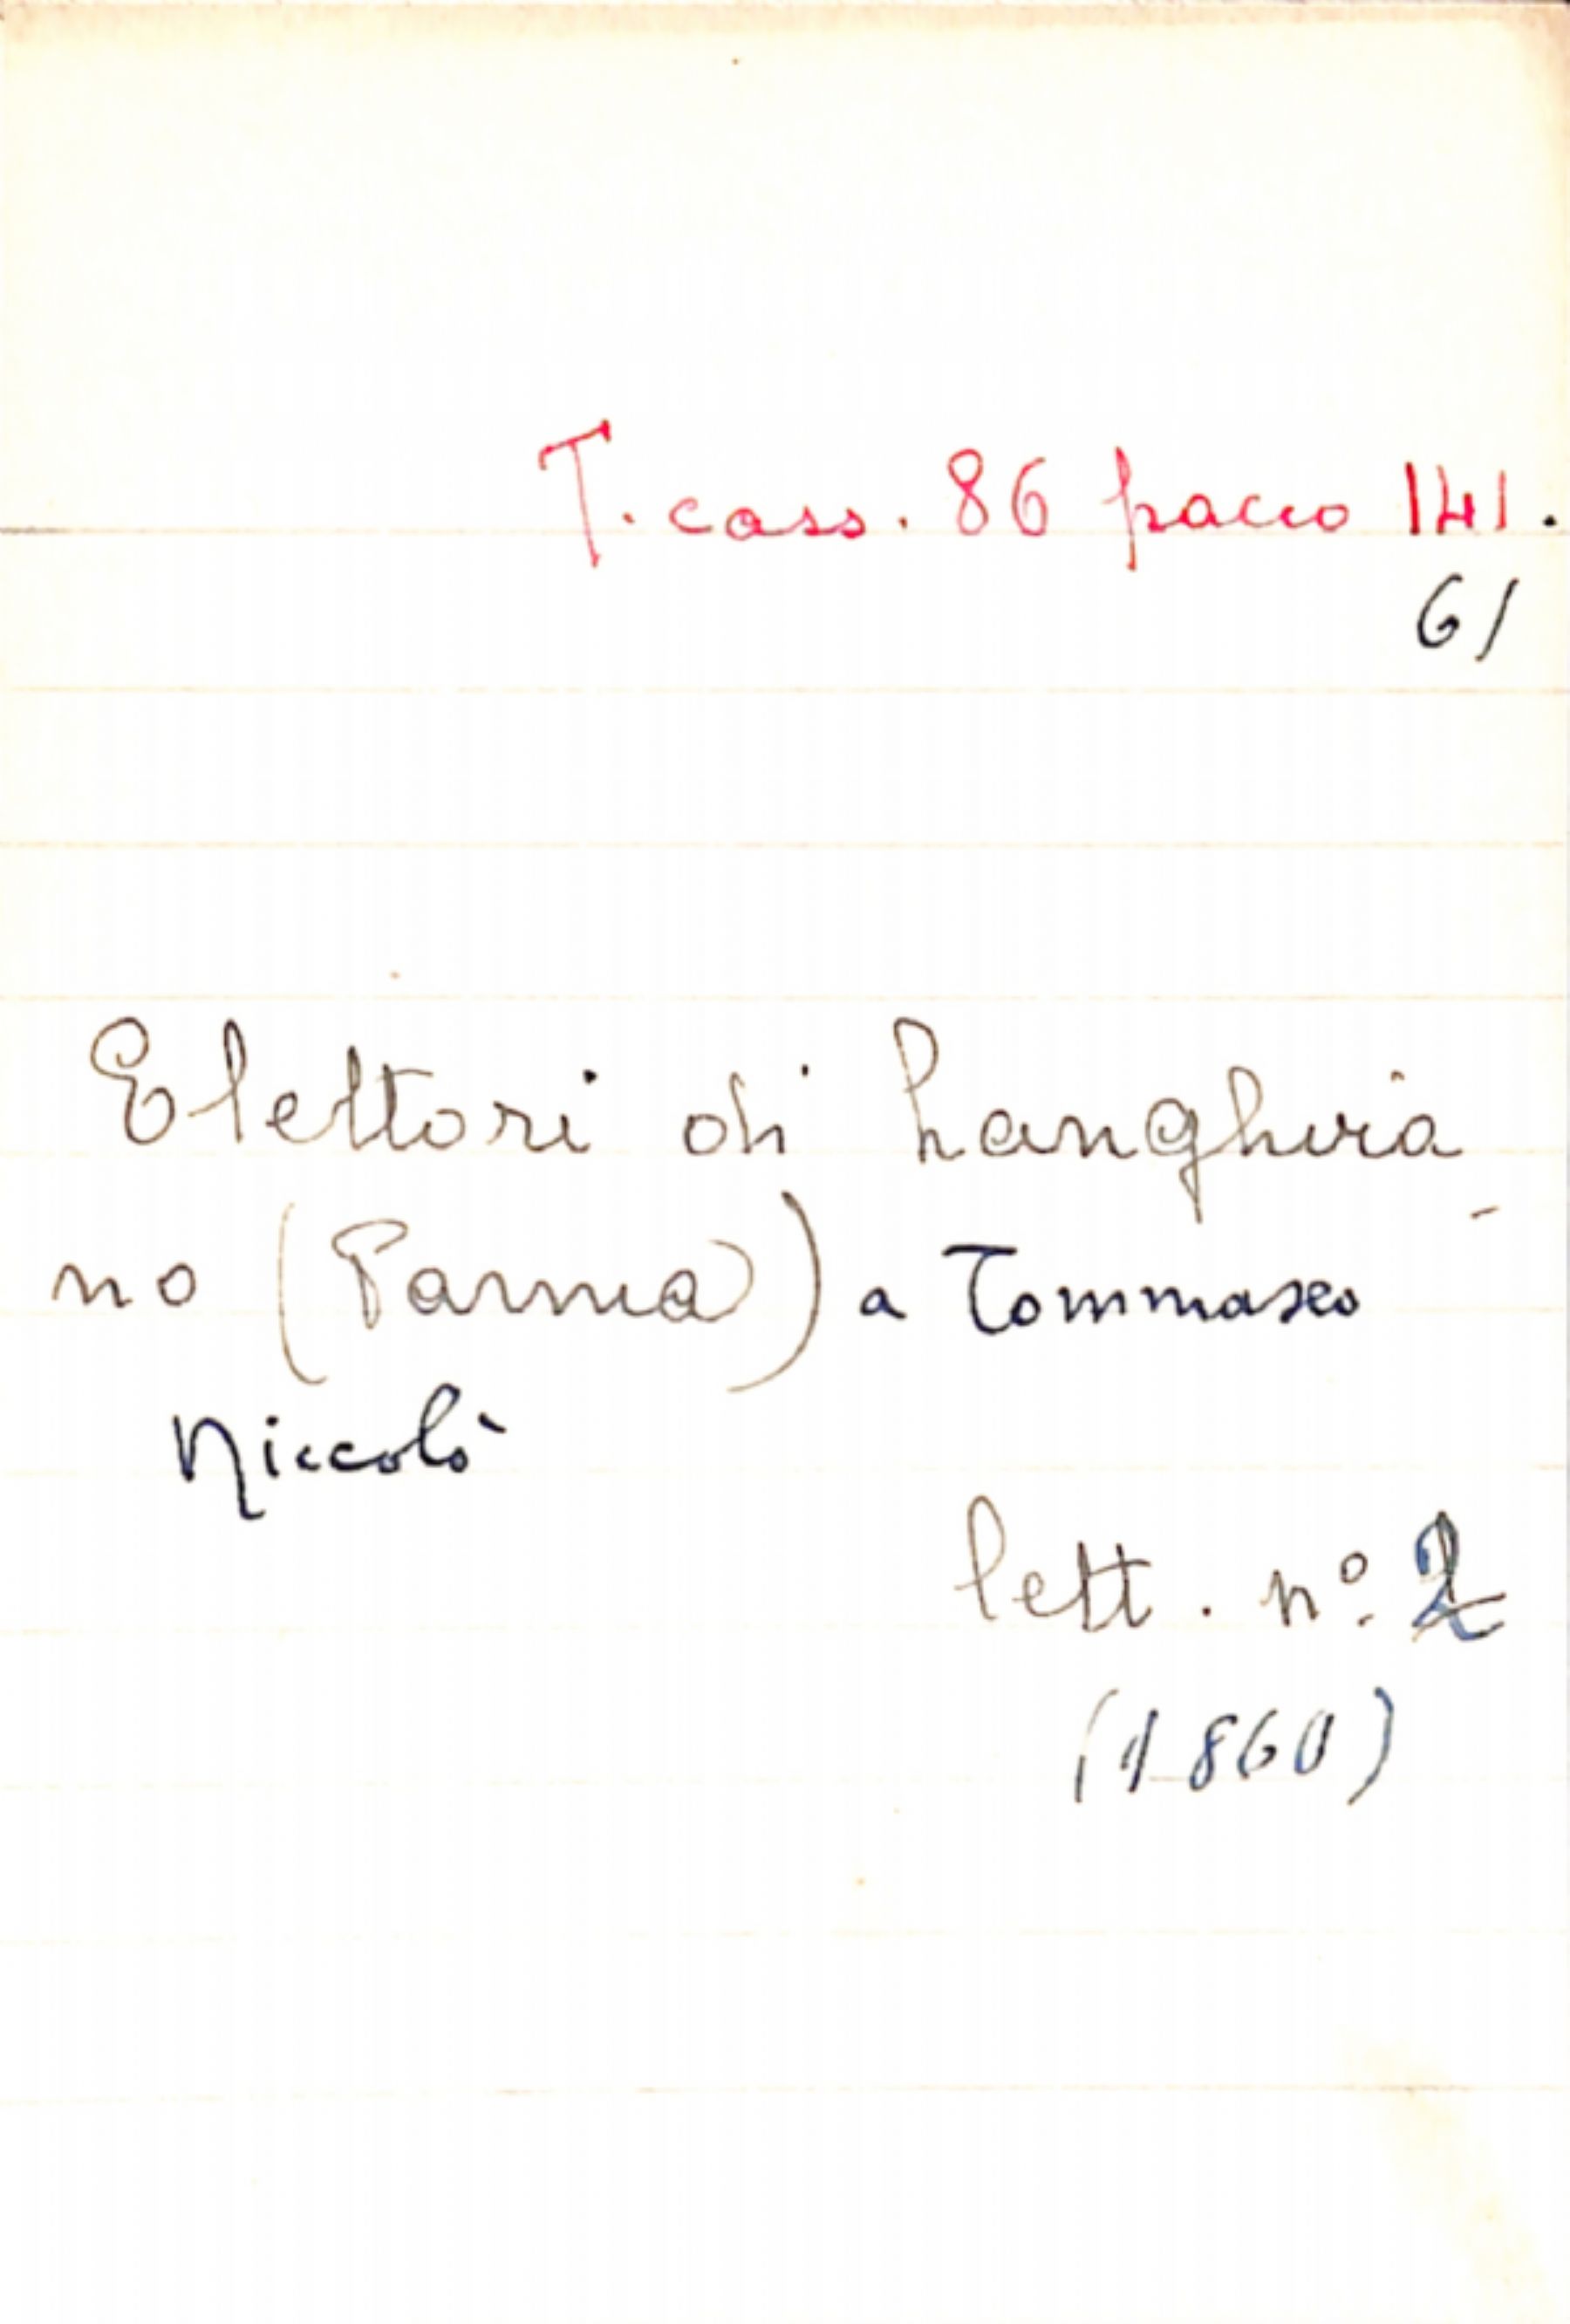 T. cass. 86 pacco 141.
61
Elettori di Langhira-
no (Parma) a Tommaseo
Niccolò
lett. nº. 2
(1860)